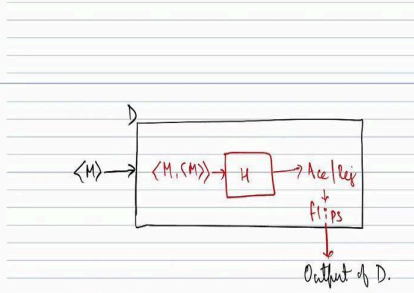 D
⟨M⟩ → ⟨M, ⟨M⟩⟩ → H → Acc/Rej
↓
flips
↓
Output of D.